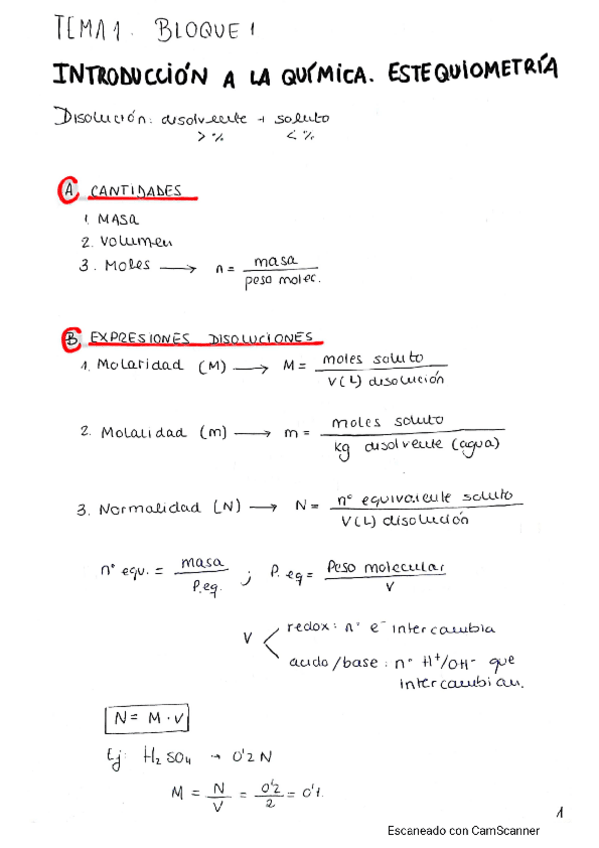 TEMA 1. BLOQUE 1
INTRODUCCIÓN A LA QUÍMICA. ESTEQUIOMETRÍA
Disolución: disolvente + soluto
> % < %
A. CANTIDADES
1. MASA
2. Volumen
3. Moles → n = masa / peso molec.
B. EXPRESIONES DISOLUCIONES
1. Molaridad (M) → M = moles soluto / V(L) disolución
2. Molalidad (m) → m = moles soluto / kg disolvente (agua)
3. Normalidad (N) → N = nº equivalente soluto / V(L) disolución
nº equ. = masa / P.eq. ; P. eq = Peso molecular / V
V < redox: nº e⁻ intercambia
acido/base: nº H⁺/OH⁻ que
intercambian.
N = M · V
Ej: H₂SO₄ → 0'2 N
M = N / V = 0'2 / 2 = 0'1.
1
Escaneado con CamScanner